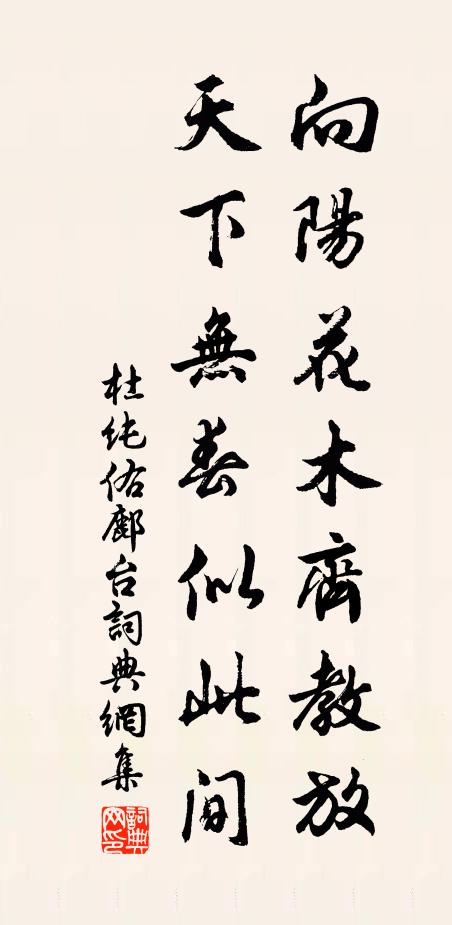 向陽花木齊教放
天下無春似此間
杜純佑鄜台詞典網集
詞典網印